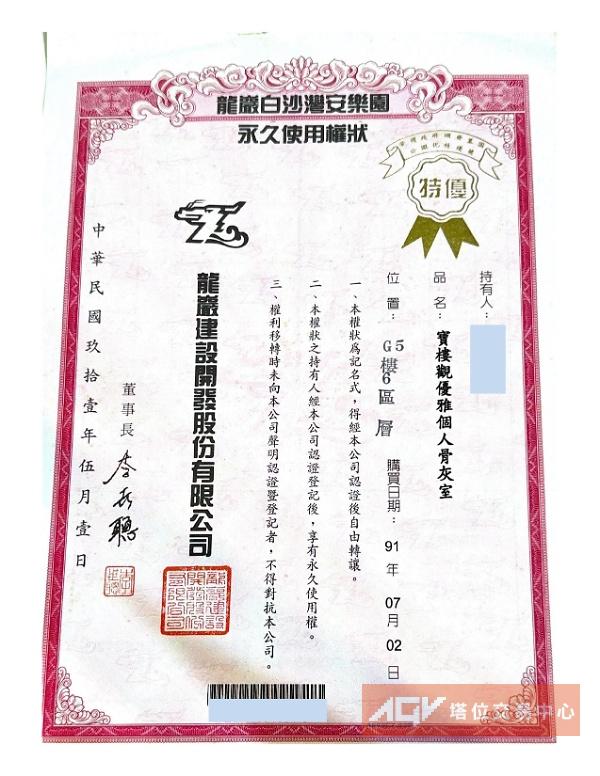 龍巖白沙灣安樂園
永久使用權狀
特優
持有人：
品名：寶樓觀優雅個人骨灰室
位置：G5樓6區 層 購買日期：91年07月02日
一、本權狀為記名式，得經本公司認證後自由轉讓。
二、本權狀之持有人經本公司認證登記後，享有永久使用權。
三、權利移轉時未向本公司聲明認證暨登記者，不得對抗本公司。
龍巖建設開發股份有限公司
董事長 李世聰
中華民國玖拾壹年伍月壹日
AGV 塔位交易中心